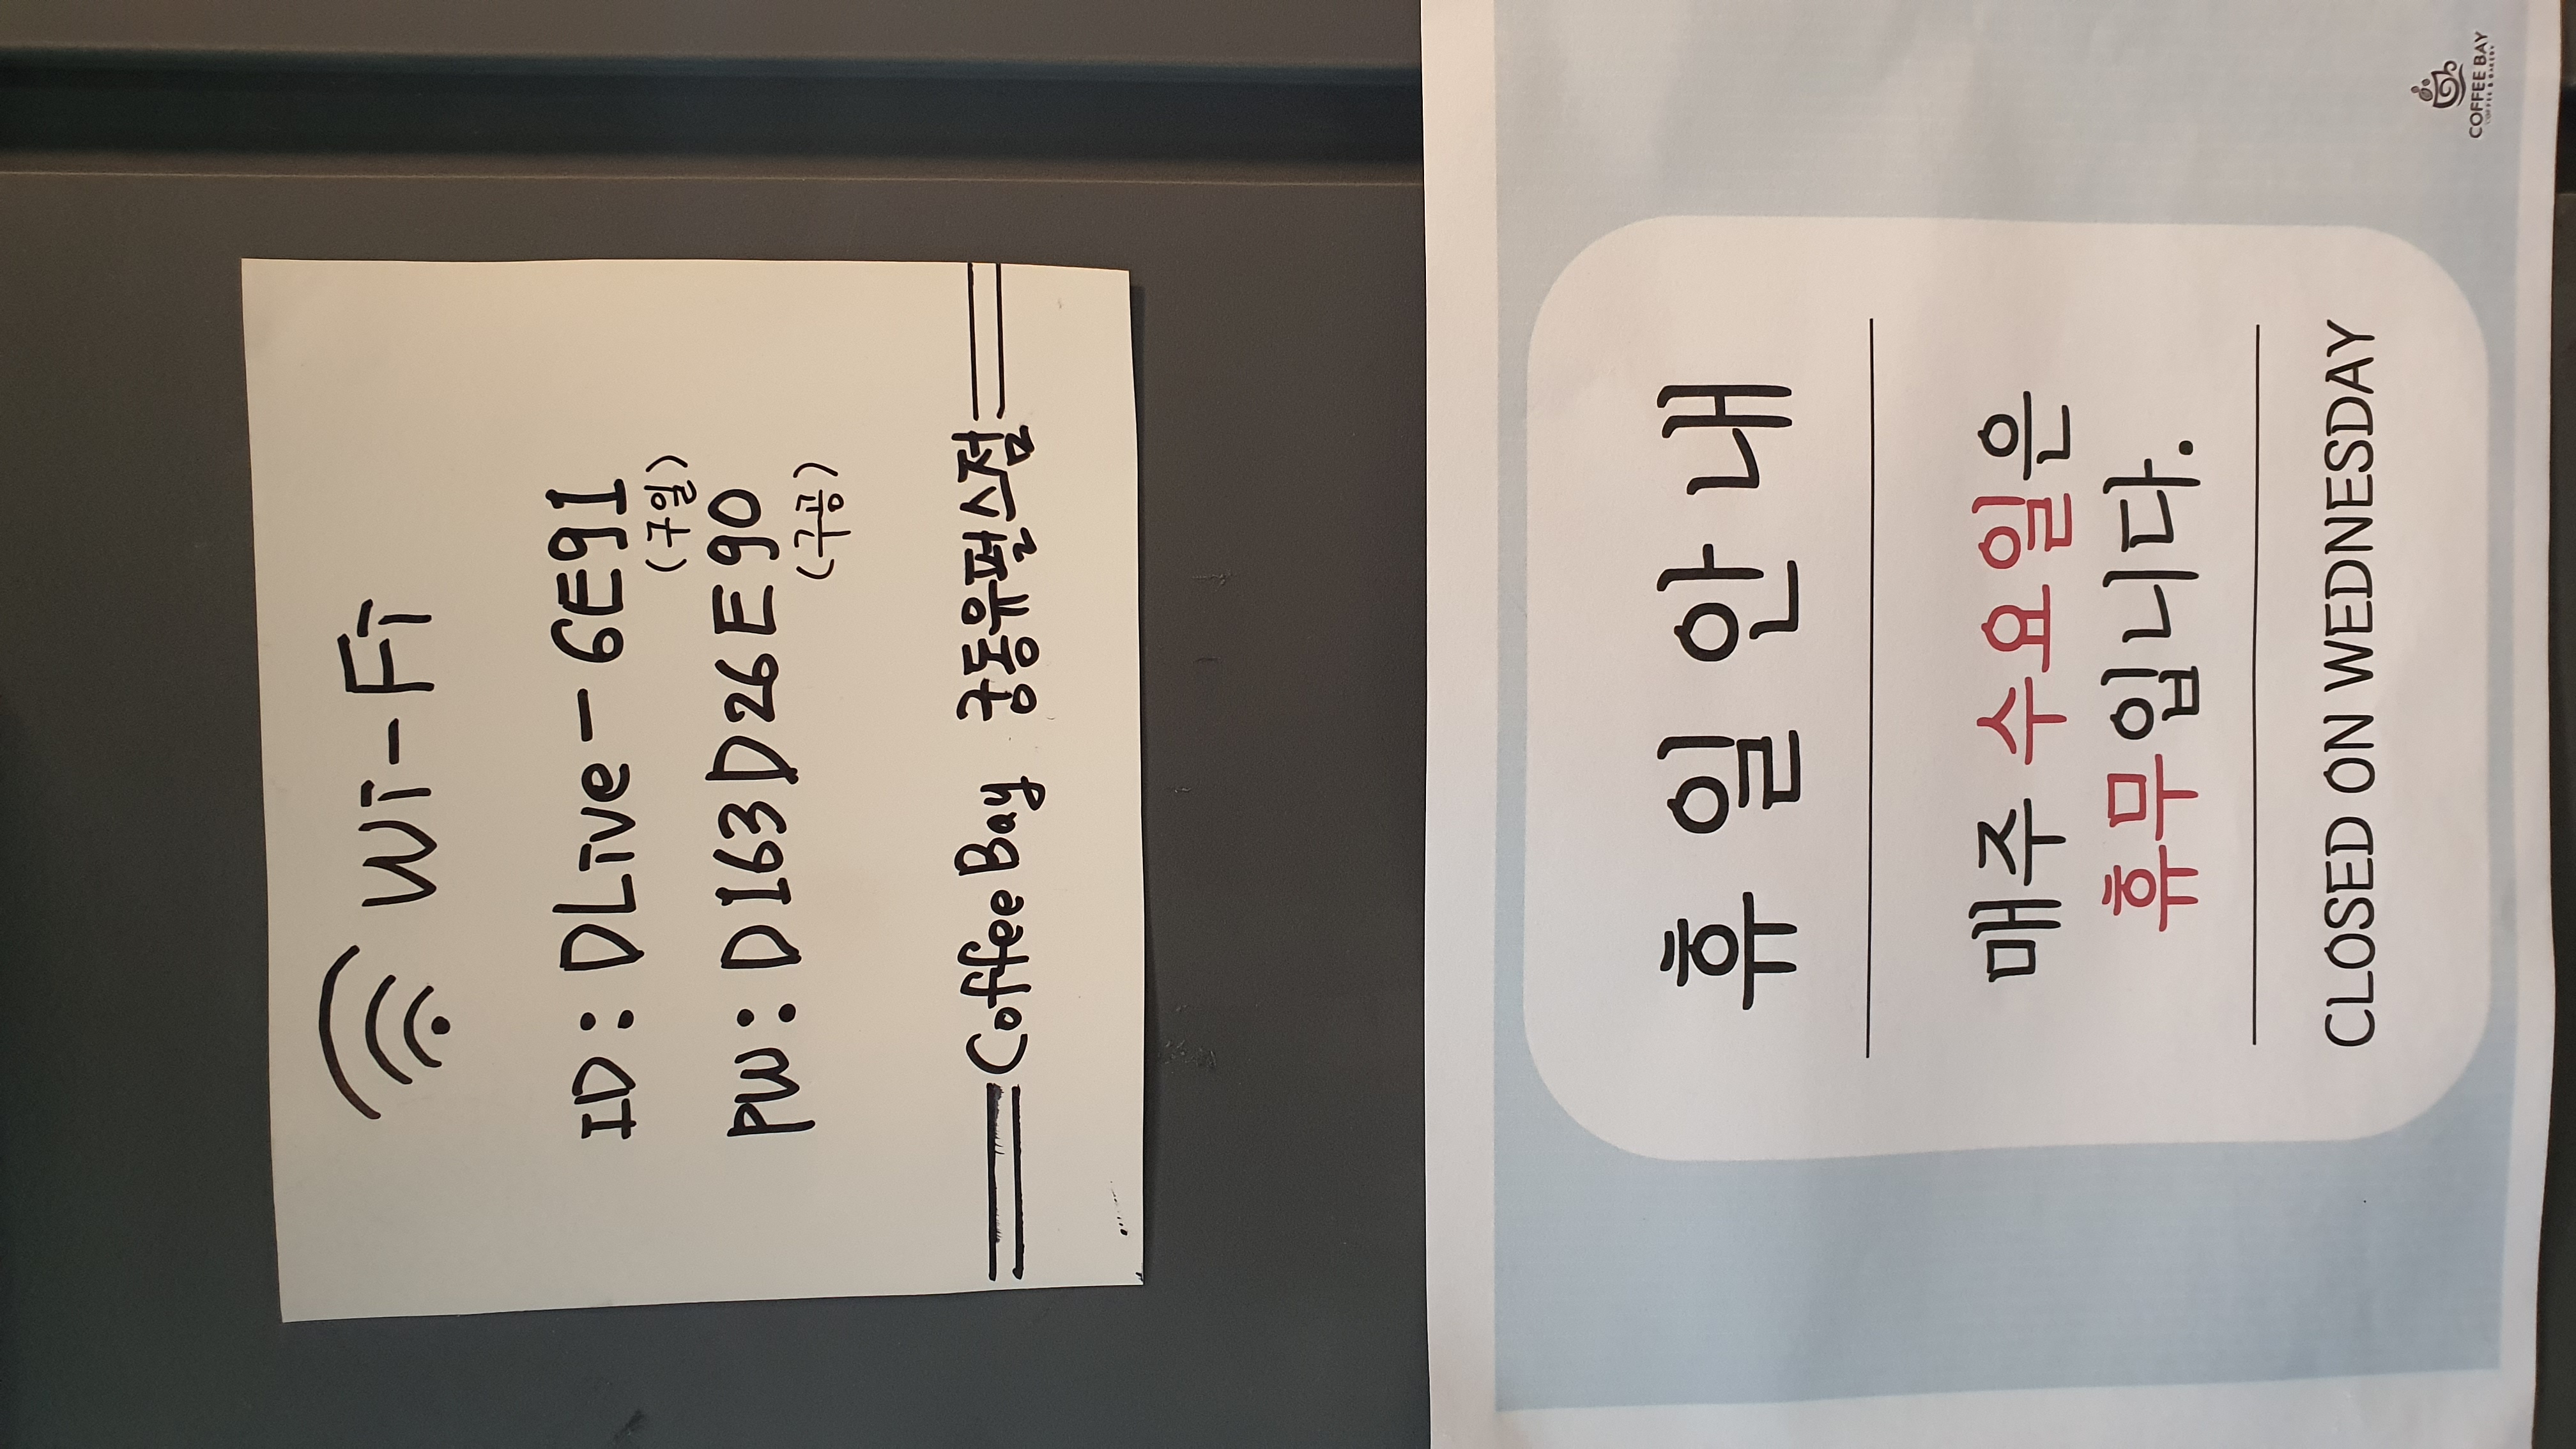 Wi-Fi
ID: DLive-6E91
(구일)
PW: D163D26E90
(구공)
Coffee Bay 궁동유펄스점
휴일안내
매주 수요일은
휴무입니다.
CLOSED ON WEDNESDAY
COFFEE BAY
COFFEE & BAKERY